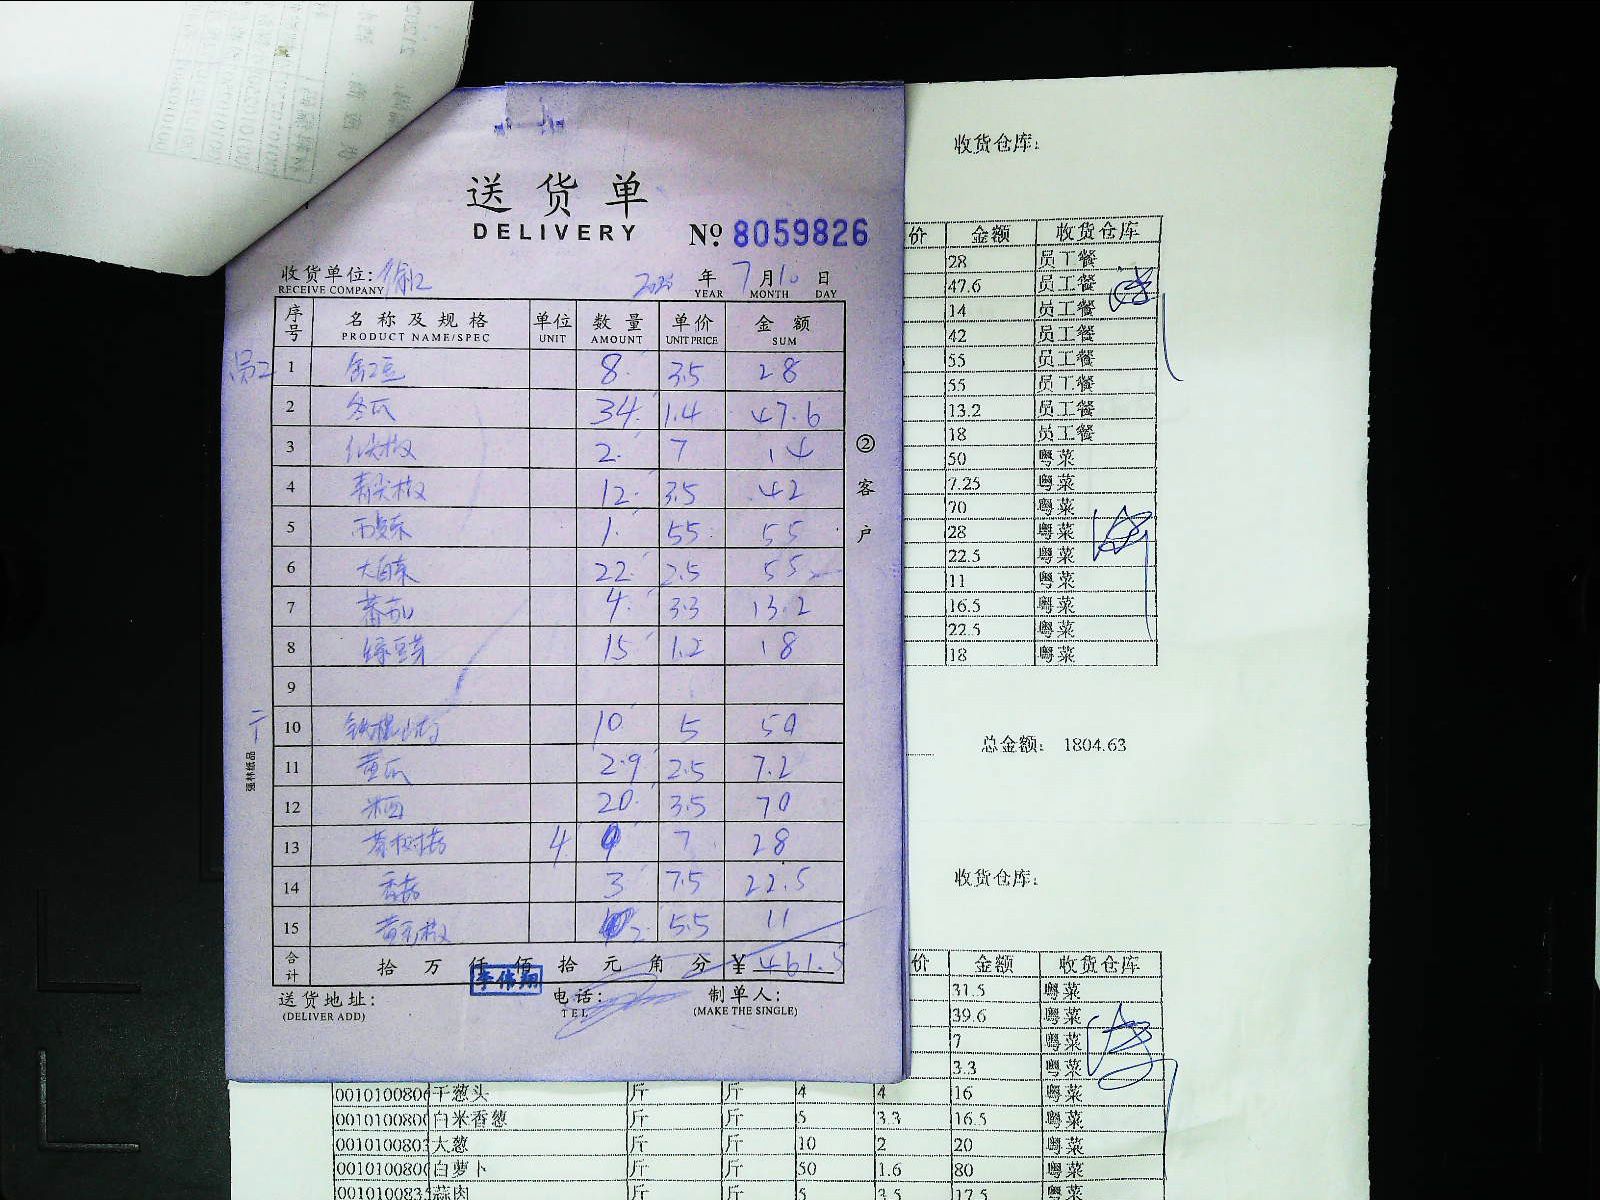 送货单
DELIVERY
№ 8059826
收货单位:
RECEIVE COMPANY
年 7 月 10 日
YEAR MONTH DAY
序号 名称及规格 单位 数量 单价 金额
PRODUCT NAME/SPEC UNIT AMOUNT UNIT PRICE SUM
员工 1 8 3.5 28
2 冬瓜 34 1.4 47.6
3 尖椒 2 7 14
4 青尖椒 12 3.5 42
5 1 55 55
6 22 2.5 55
7 蕃茄 4 3.3 13.2
8 绿豆芽 15 1.2 18
9
10 铁棍山药 10 5 50
11 黄瓜 2.9 2.5 7.2
12 20 3.5 70
13 4 7 28
14 香菇 3 7.5 22.5
15 2 5.5 11
合计 拾 万 仟 佰 拾 元 角 分 ¥ 461.5
李伟翔
送货地址:
(DELIVER ADD)
电话:
TEL
制单人:
(MAKE THE SINGLE)
②客户
强林纸品
收货仓库:
价 金额 收货仓库
28 员工餐
47.6 员工餐
14 员工餐
42 员工餐
55 员工餐
55 员工餐
13.2 员工餐
18 员工餐
50 粤菜
7.25 粤菜
70 粤菜
28 粤菜
22.5 粤菜
11 粤菜
16.5 粤菜
22.5 粤菜
18 粤菜
总金额: 1804.63
收货仓库:
价 金额 收货仓库
31.5 粤菜
39.6 粤菜
7 粤菜
3.3 粤菜
干葱头 斤 斤 4 4 16 粤菜
白米香葱 斤 斤 5 3.3 16.5 粤菜
大葱 斤 斤 10 2 20 粤菜
白萝卜 斤 斤 50 1.6 80 粤菜
蒜肉 斤 斤 5 3.5 17.5 粤菜